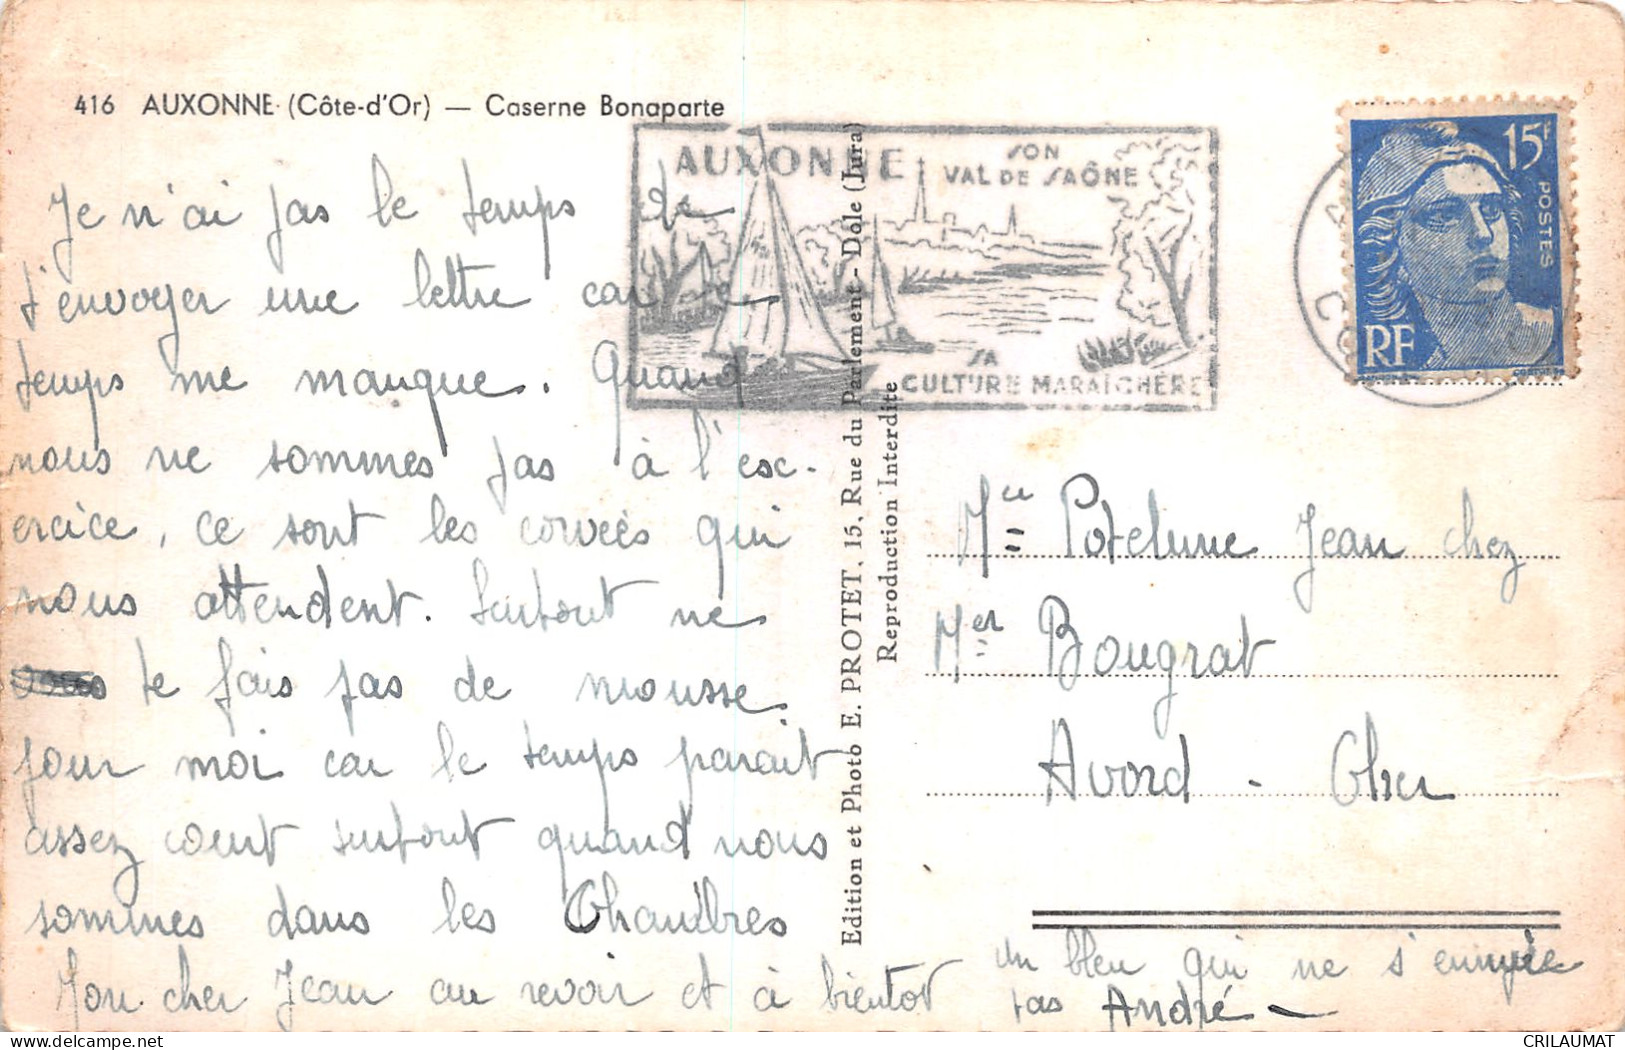 416 AUXONNE (Côte-d'Or) — Caserne Bonaparte
Je n'ai pas le temps de
t'envoyer une lettre car le
temps me manque. Quand
nous ne sommes pas à l'ex-
ercice, ce sont les corveés qui
nous attendent. Surtout ne
te fais pas de mousse
pour moi car le temps parait
assez court surtout quand nous
sommes dans les Chambres
Mon cher Jean au revoir et à bientot
un bleu qui ne s'ennuie
pas André
AUXONNE
SON
VAL DE SAÔNE
SA
CULTURE MARAÎCHÈRE
15F
POSTES
RF
Edition et Photo E. PROTET, 15, Rue du Parlement - Dole (Jura)
Reproduction Interdite
Potelune Jean chez
Mer Bougrat
Avord - Cher
CRILAUMAT